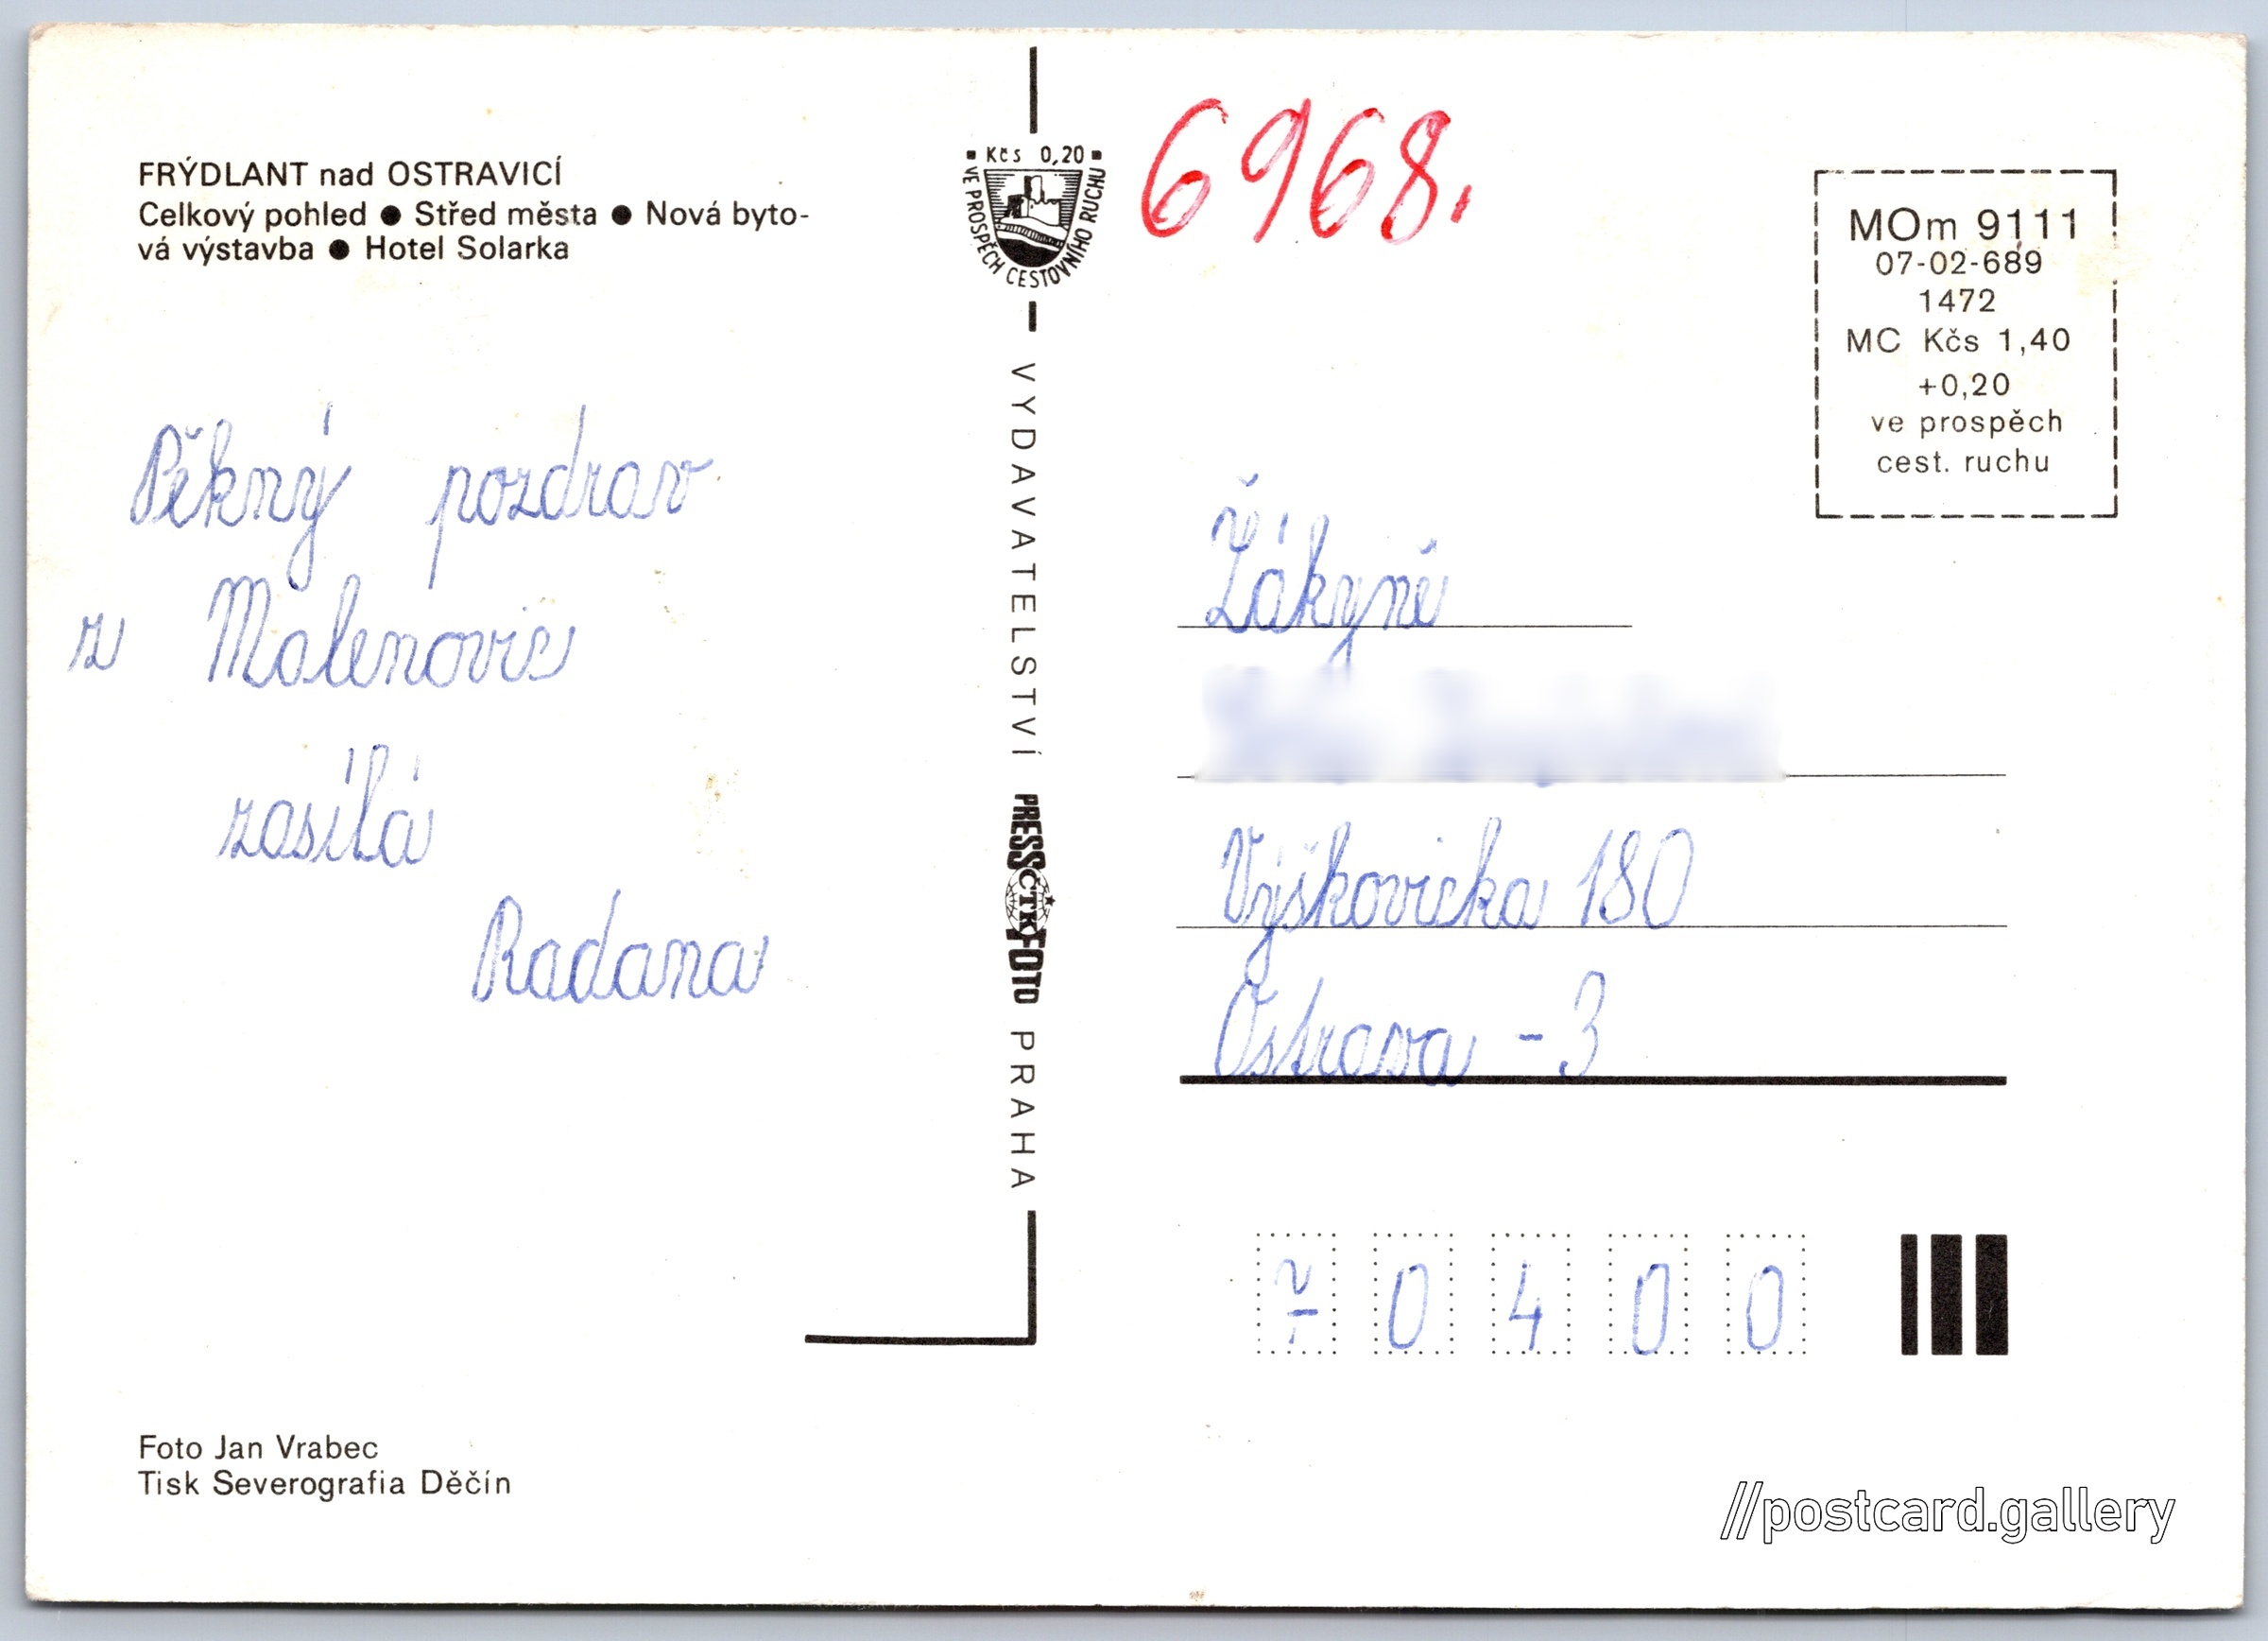 FRÝDLANT nad OSTRAVICÍ
Celkový pohled ● Střed města ● Nová byto-
vá výstavba ● Hotel Solarka
Pěkný pozdrav
z Malenovic
zasílá
Radana
Foto Jan Vrabec
Tisk Severografia Děčín
Kčs 0,20
VE PROSPĚCH CESTOVNÍHO RUCHU
VYDAVATELSTVÍ PRESSČTKFOTO PRAHA
6968.
MOm 9111
07-02-689
1472
MC Kčs 1,40
+0,20
ve prospěch
cest. ruchu
Žákyně
Výškovicka 180
Ostrava - 3
7 0 4 0 0
//postcard.gallery